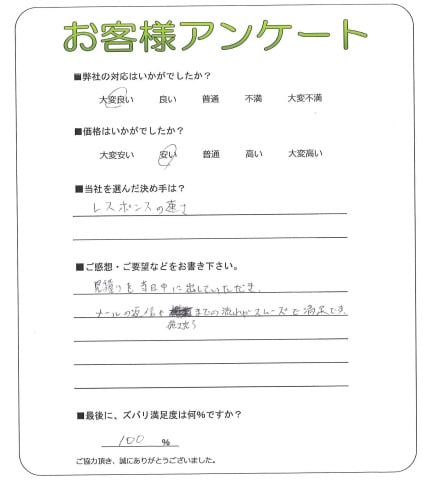 お客様アンケート
■弊社の対応はいかがでしたか？
大変良い 良い 普通 不満 大変不満
■価格はいかがでしたか？
大変安い 安い 普通 高い 大変高い
■当社を選んだ決め手は？
レスポンスの速さ
■ご感想・ご要望などをお書き下さい。
見積りを当日中に出していただき、
メールの返信や までの流れがスムーズで満足です。
■最後に、ズバリ満足度は何％ですか？
100 %
ご協力頂き、誠にありがとうございました。